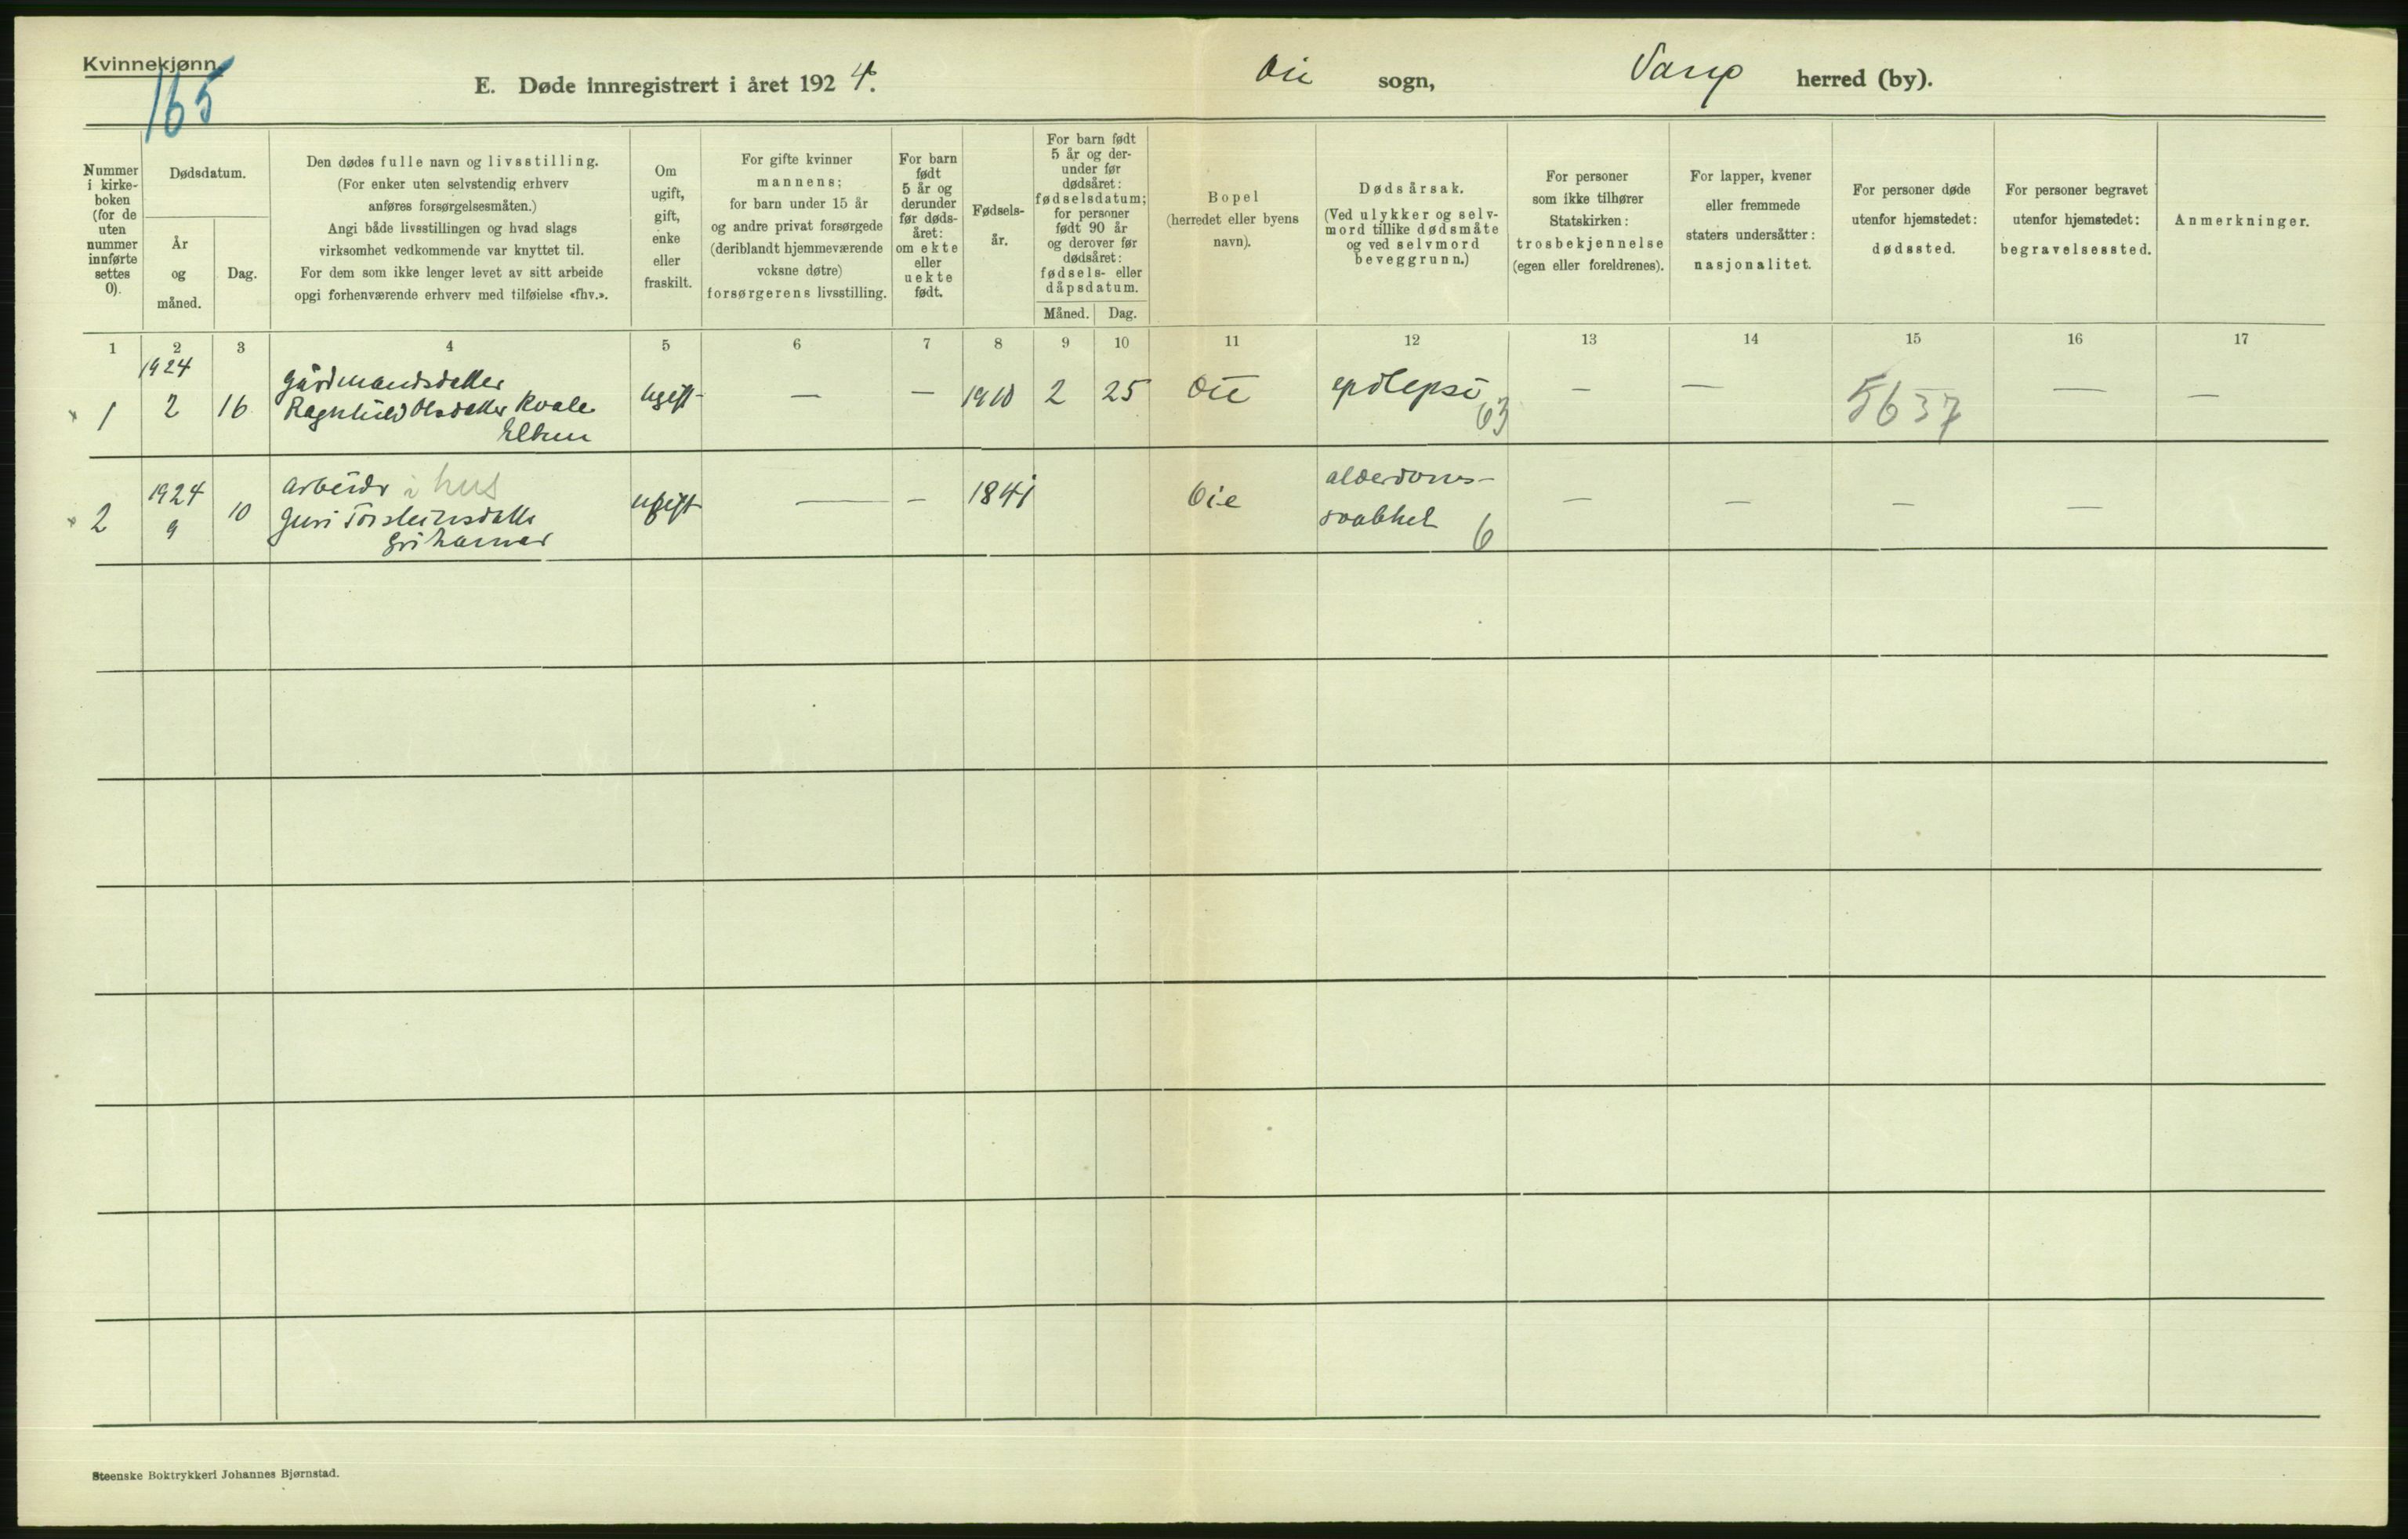 Kvinnekjønn.
165
E. Døde innregistrert i året 1924. Øie sogn, Vang herred (by).
Nummer i kirkeboken (for de uten nummer innførte settes 0).
Dødsdatum.
År og måned.
Dag.
Den dødes fulle navn og livsstilling.
(For enker uten selvstendig erhverv
anføres forsørgelsesmåten.)
Angi både livsstillingen og hvad slags
virksomhet vedkommende var knyttet til.
For dem som ikke lenger levet av sitt arbeide
opgi forhenværende erhverv med tilføielse «fhv.».
Om
ugift,
gift,
enke
eller
fraskilt.
For gifte kvinner
mannens;
for barn under 15 år
og andre privat forsørgede
(deriblandt hjemmeværende
voksne døtre)
forsørgerens livsstilling.
For barn
født
5 år og
derunder
før døds-
året:
om ekte
eller
uekte
født.
Fødsels-
år.
For barn født
5 år og der-
under før
dødsåret:
fødselsdatum;
for personer
født 90 år
og derover før
dødsåret:
fødsels- eller
dåpsdatum.
Måned. Dag.
Bopel
(herredet eller byens
navn).
Dødsårsak.
(Ved ulykker og selv-
mord tillike dødsmåte
og ved selvmord
beveggrunn.)
For personer
som ikke tilhører
Statskirken:
trosbekjennelse
(egen eller foreldrenes).
For lapper, kvener
eller fremmede
staters undersåtter:
nasjonalitet.
For personer døde
utenfor hjemstedet:
dødssted.
For personer begravet
utenfor hjemstedet:
begravelsessted.
Anmerkninger.
1 2 3 4 5 6 7 8 9 10 11 12 13 14 15 16 17
1 1924 2 16 Gårdmandsdatter
Ragnhild Olsdatter Kvale
ugift — — 1910 2 25 Øie epilepsi 63 — — 5637 — —
2 1924 9 10 arbeider i hus
Guri Torsteinsdatter
ugift — — 1841 Øie alderdoms-
svakhet 6 — — — —
Steenske Boktrykkeri Johannes Bjørnstad.